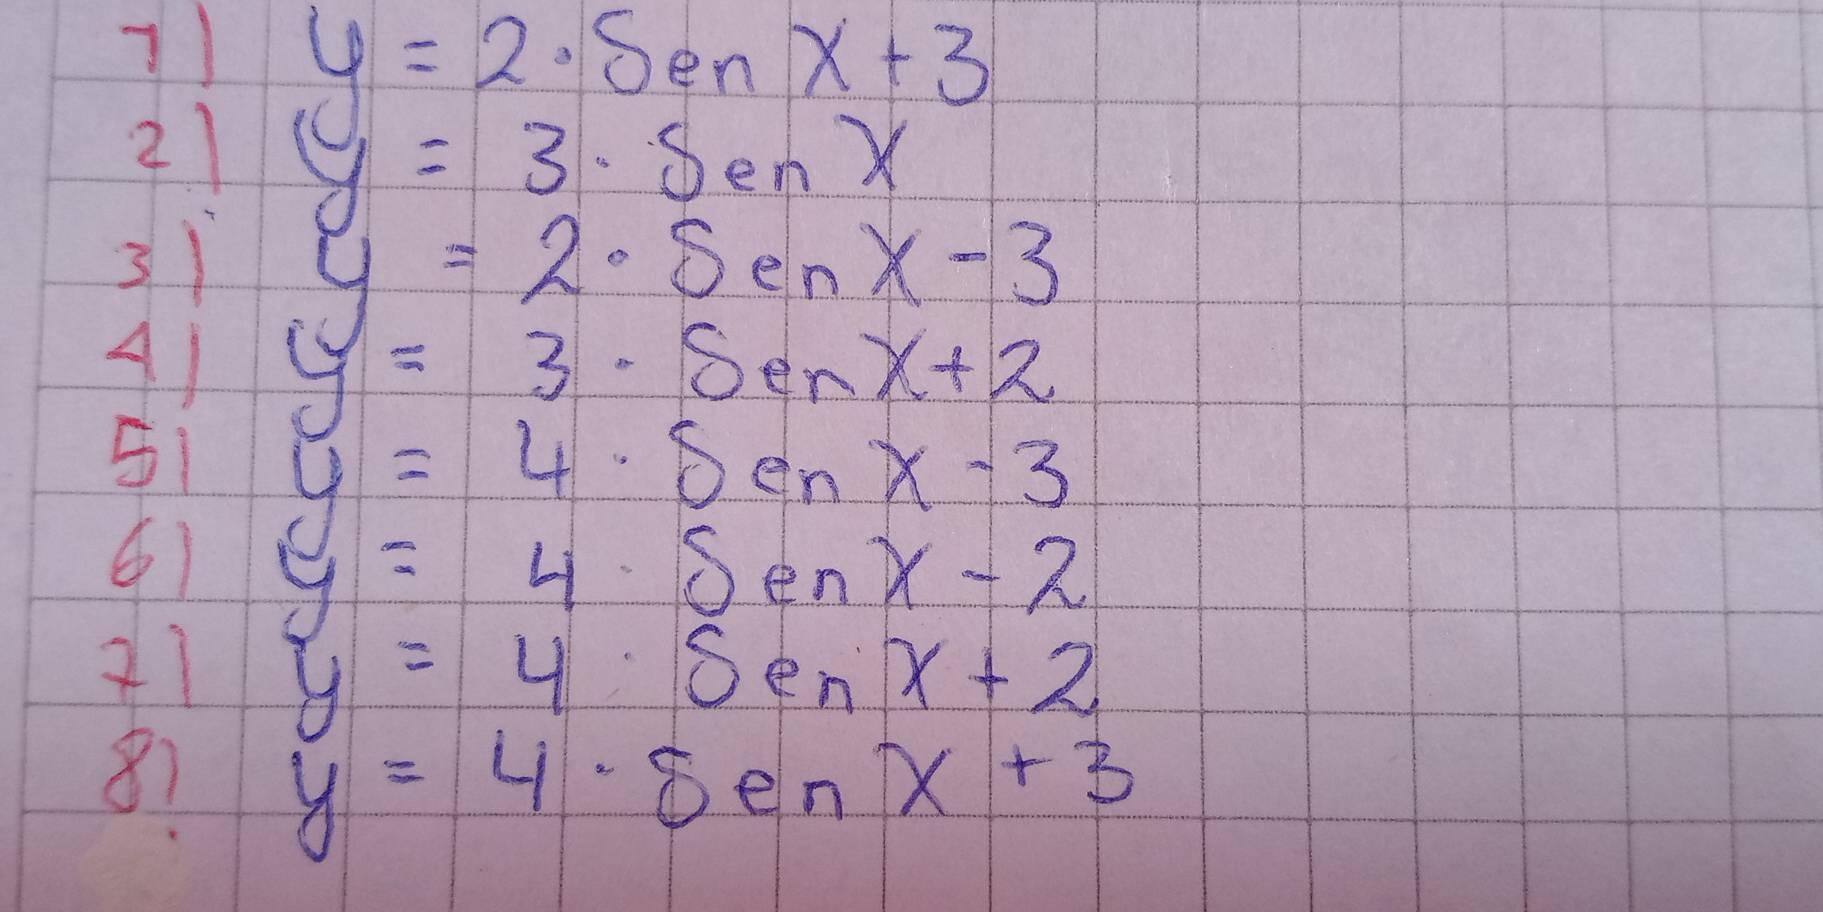 1) y = 2 · Sen x + 3
2) y = 3 · Sen x
3) y = 2 · Sen x - 3
4) y = 3 · Sen x + 2
5) y = 4 · Sen x - 3
6) y = 4 · Sen x - 2
7) y = 4 · Sen x + 2
8) y = 4 · Sen x + 3